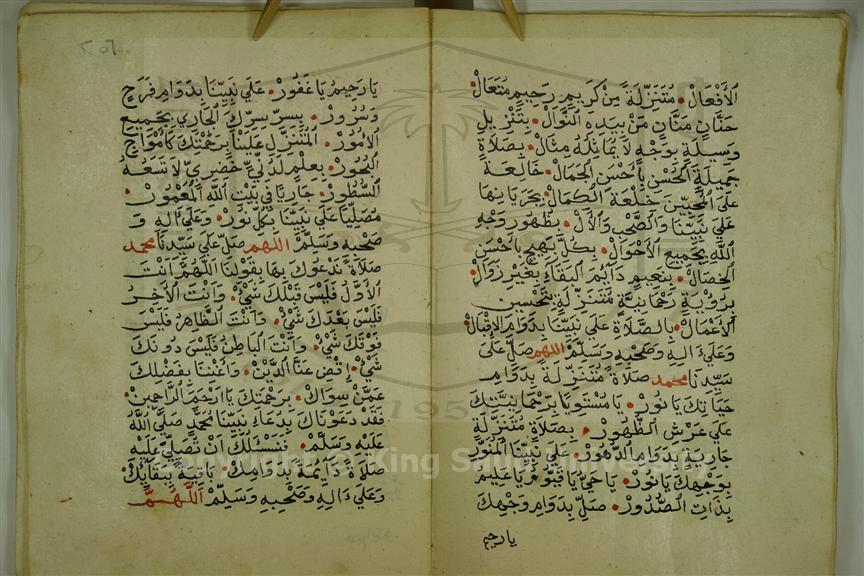 الأَفْعَالْ. مُتَنَزِّلَةً مِنْ كَرِيمٍ رَحِيمٍ مُتَعَالْ.
حَنَّانٍ مَنَّانٍ مَنْ بِيَدِهِ النَّوَالْ. بِتَنْزِيلِ
وَسِيلَةٍ بِوَجْهٍ لَا يُمَاثِلُهُ مِثَالْ. بِصَلَاةٍ
جَمِيلَةِ الْحُسْنِ بِأَحْسَنِ الْجَمَالْ. خَالِعَةً
عَلَى الْمُحِبِّينَ خِلْعَةَ الْكَمَالْ. بِجَرَيَانِهَا
عَلَى نَبِيِّنَا وَالصَّحْبِ وَالْآلْ. بِظُهُورِ وَجْهِ
اللَّهِ بِجَمِيعِ الْأَحْوَالْ. بِكُلِّ بَهِيجٍ بِأَحْسَنِ
الْخِصَالْ. بِنَعِيمٍ دَائِمِ الْبَقَاءِ بِغَيْرِ زَوَالْ.
بِرُؤْيَةٍ رَحْمَانِيَّةٍ مُتَنَزِّلَةٍ بِتَحْسِينِ
الْأَعْمَالْ. بِالصَّلَاةِ عَلَى نَبِيِّنَا بِدَوَامِ الْإِقْبَالْ.
وَعَلَى آلِهِ وَصَحْبِهِ وَسَلِّمْ اللهم صَلِّ عَلَى
سَيِّدِنَا محمد صَلَاةً مُتَنَزِّلَةً بِدَوَامِ
حَيَاتِكَ يَا نُورْ. يَا مُسْتَوِيًا بِرَحْمَانِيَّتِكَ
عَلَى عَرْشِ الظُّهُورْ. بِصَلَاةٍ مُتَنَزِّلَةٍ
جَارِيَةٍ بِدَوَامِ الدُّهُورْ. عَلَى نَبِيِّنَا الْمُنَوَّرِ
بِوَجْهِكَ يَا نُورْ. يَا حَيُّ يَا قَيُّومُ يَا عَلِيمُ
بِذَاتِ الصُّدُورْ. صَلِّ بِدَوَامِ وَجْهِكَ
يا رحيم
٢٥٦
يَا رَحِيمُ يَا غَفُورْ. عَلَى نَبِيِّنَا بِدَوَامِ فَرَحٍ
وَسُرُورْ. بِسِرِّ سِرِّكَ الْجَارِي بِجَمِيعِ
الْأُمُورْ. الْمُتَنَزِّلِ عَلَيْنَا بِرَحْمَتِكَ كَأَمْوَاجِ
الْبُحُورْ. بِعِلْمٍ لَدُنِّيٍّ خَضِرِيٍّ لَا تَسَعُهُ
السُّطُورْ. جَارِيًا فِي بَيْتِ اللَّهِ الْمَعْمُورْ.
مُصَلِّيًا عَلَى نَبِيِّنَا بِكُلِّ نُورْ. وَعَلَى آلِهِ وَ
صَحْبِهِ وَسَلِّمْ اللهم صَلِّ عَلَى سَيِّدِنَا محمد
صَلَاةً نَدْعُوكَ بِهَا بِقَوْلِنَا اللَّهُمَّ أَنْتَ
الْأَوَّلُ فَلَيْسَ قَبْلَكَ شَيْءْ. وَأَنْتَ الْآخِرُ
فَلَيْسَ بَعْدَكَ شَيْءْ. وَأَنْتَ الظَّاهِرُ فَلَيْسَ
فَوْقَكَ شَيْءْ. وَأَنْتَ الْبَاطِنُ فَلَيْسَ دُونَكَ
شَيْءْ. اِقْضِ عَنَّا الدَّيْنْ. وَأَغْنِنَا بِفَضْلِكَ
عَمَّنْ سِوَاكْ. بِرَحْمَتِكَ يَا أَرْحَمَ الرَّاحِمِينْ.
فَقَدْ دَعَوْنَاكَ بِدُعَاءِ نَبِيِّنَا مُحَمَّدٍ صَلَّى اللَّهُ
عَلَيْهِ وَسَلَّمْ. نَسْئَلُكَ أَنْ تُصَلِّيَ عَلَيْهِ
صَلَاةً دَائِمَةً بِدَوَامِكْ. بَاقِيَةً بِبَقَائِكْ.
وَعَلَى آلِهِ وَصَحْبِهِ وَسَلِّمْ اَللَّهُمَّ